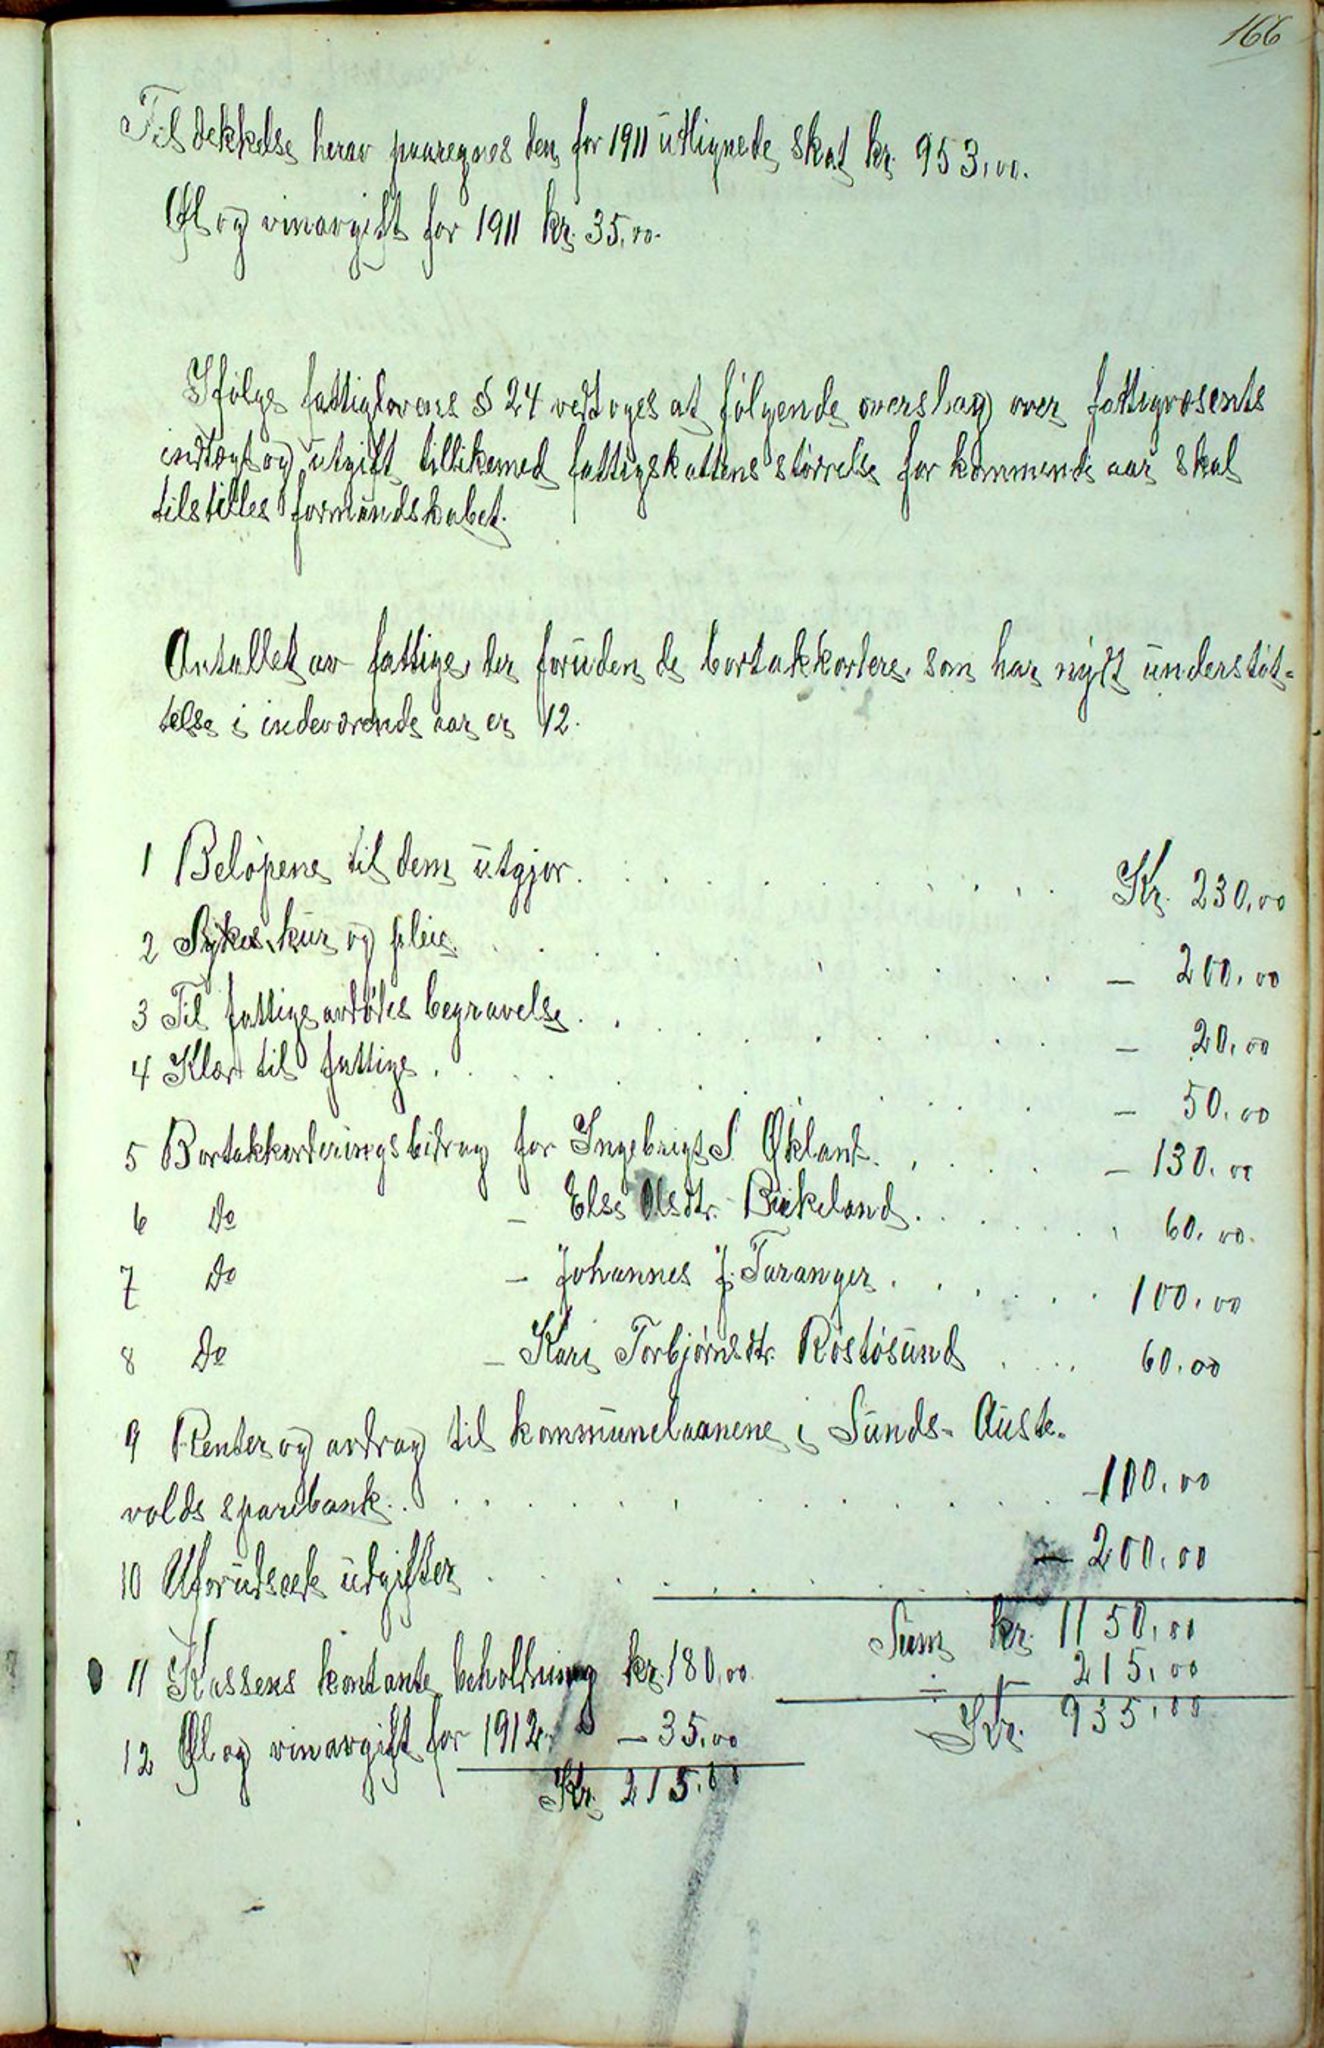 166
Til dekkelse herav paaregnes den for 1911 utlignede skat kr. 953,00.
Øl og vinavgift for 1911 kr. 35,00.
Ifølge fattiglovens § 24 vedtoges at følgende overslag over fattigvæsents
indtægt og utgift tillikemed fattigskattens størrelse for kommende aar skal
tilstilles formandskabet.
Antallet av fattige, der foruden de bortakkorterte, som har nydt understøt-
telse i indeværende aar er 12.
1 Beløpene til dem utgjør. Kr. 230,00
2 Sykes kur og pleie. – 200,00
3 Til fattige avdødes begravelse. – 20,00
4 Klær til fattige. – 50,00
5 Bortakkorderingsbidrag for Ingebrigt S. Økland. – 130,00
6 Do – Else Olsdtr. Birkeland. 60,00.
7 Do – Johannes J. Taranger. 100,00
8 Do – Kari Torbjørnsdtr. Røstøsund 60,00
9 Renter og avdrag til kommunelaanene i Sunds- Auste-
volds sparebank. – 100,00
10 Uforudseede udgifter – 200,00
Sum kr. 1150,00
11 Kassens kontante beholdning kr. 180,00 – 215,00
12 Øl og vinavgift for 1912. – 35,00 Kr. 935,00
Kr. 215,00